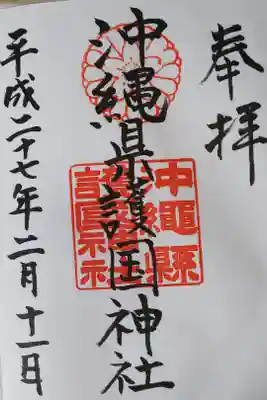 奉拝
沖縄県護国神社
平成二十七年二月十一日
沖縄縣
護國神社